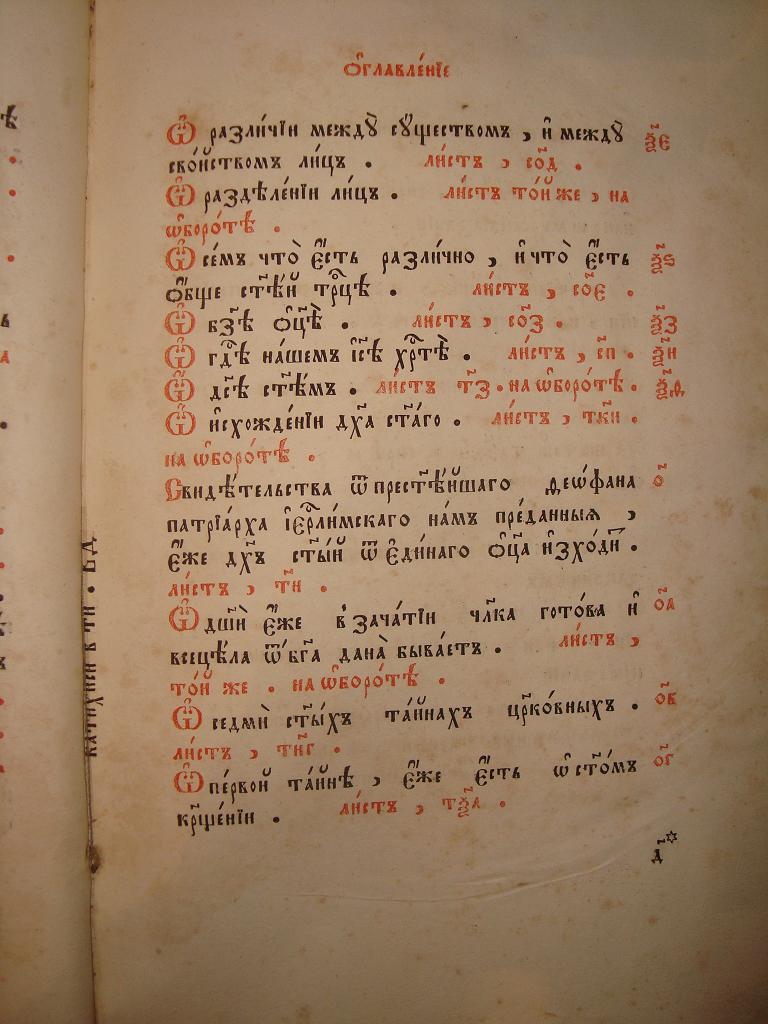 Ѻ҆главле́нїе
Ѡ҆ разли́чїи междꙋ̀ сꙋ́ществомъ , и҆ междꙋ̀ ѯ҃є
сво́йствомъ ли́цъ . ли́стъ , со҃д .
Ѡ҆ раздѣле́нїи ли́цъ . ли́стъ то́й же , на
ѡ҆боро́тѣ .
Ѡ҆ се́мъ что̀ є҆́сть разли́чно , и҆ что̀ є҆́сть ѯ҃ѕ
ѻ҆́бще ст҃ѣ́й трⷪ҇цѣ . ли́стъ , со҃є .
Ѡ҆ бз҃ѣ ѻ҆ц҃ѣ̀ . ли́стъ , со҃з . ѯ҃з
Ѡ҆ гдⷭ҇ѣ на́шемъ і҆с҃ѣ хрⷭ҇тѣ̀ . ли́стъ , с҃п . ѯ҃и
Ѡ҆ дс҃ѣ ст҃ѣ́мъ . ли́стъ т҃з . на ѡ҆боро́тѣ . ѯ҃ѳ
Ѡ҆ и҆схожде́нїи дх҃а ст҃а́го . ли́стъ , тк҃и .
на ѡ҆боро́тѣ .
Свидѣ́тельства ѿ прест҃ѣ́йшаго ѳеѡфа́на о҃
патрїа́рха і҆ерⷭ҇ли́мскаго на́мъ пре́данныѧ ,
є҆́же дх҃ъ ст҃ы́й ѿ є҆ди́наго ѻ҆ц҃а̀ и҆зхо́дитъ .
ли́стъ , т҃н .
Ѡ҆ дш҃ѝ є҆́же в̾ зача́тїи чл҃ка гото́ва и҆ о҃а
всецѣ́ла ѿ бг҃а дана̀ быва́етъ . ли́стъ ,
то́й же . на ѡ҆боро́тѣ .
Ѡ҆ седмѝ ст҃ы́хъ та́йнахъ црⷦ҇о́вныхъ . о҃в
ли́стъ , тн҃г .
Ѡ҆ пе́рвой та́йнѣ , є҆́же є҆́сть ѡ҆ ст҃о́мъ о҃г
крⷳ҇е́нїи . ли́стъ , тѯ҃а .
д҃ *
катихиси в ти . бд